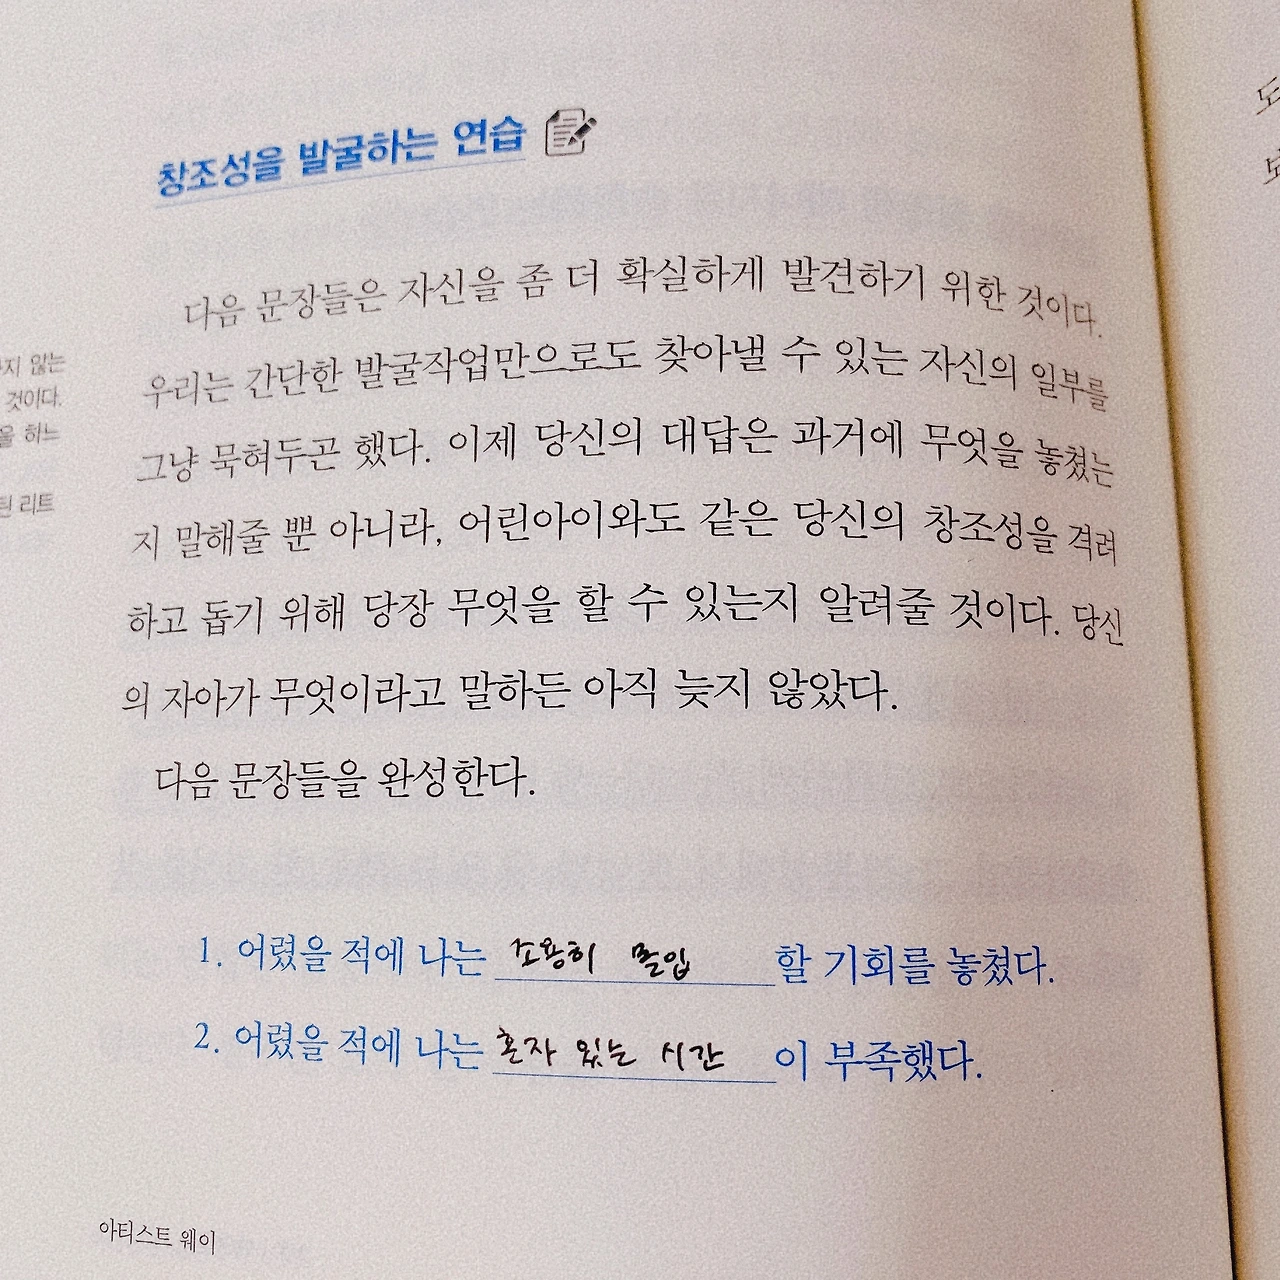 창조성을 발굴하는 연습
다음 문장들은 자신을 좀 더 확실하게 발견하기 위한 것이다.
우리는 간단한 발굴작업만으로도 찾아낼 수 있는 자신의 일부를
그냥 묵혀두곤 했다. 이제 당신의 대답은 과거에 무엇을 놓쳤는
지 말해줄 뿐 아니라, 어린아이와도 같은 당신의 창조성을 격려
하고 돕기 위해 당장 무엇을 할 수 있는지 알려줄 것이다. 당신
의 자아가 무엇이라고 말하든 아직 늦지 않았다.
다음 문장들을 완성한다.
1. 어렸을 적에 나는 조용히 몰입 할 기회를 놓쳤다.
2. 어렸을 적에 나는 혼자 있는 시간 이 부족했다.
아티스트 웨이
지 않는
것이다.
을 하느
린 리트